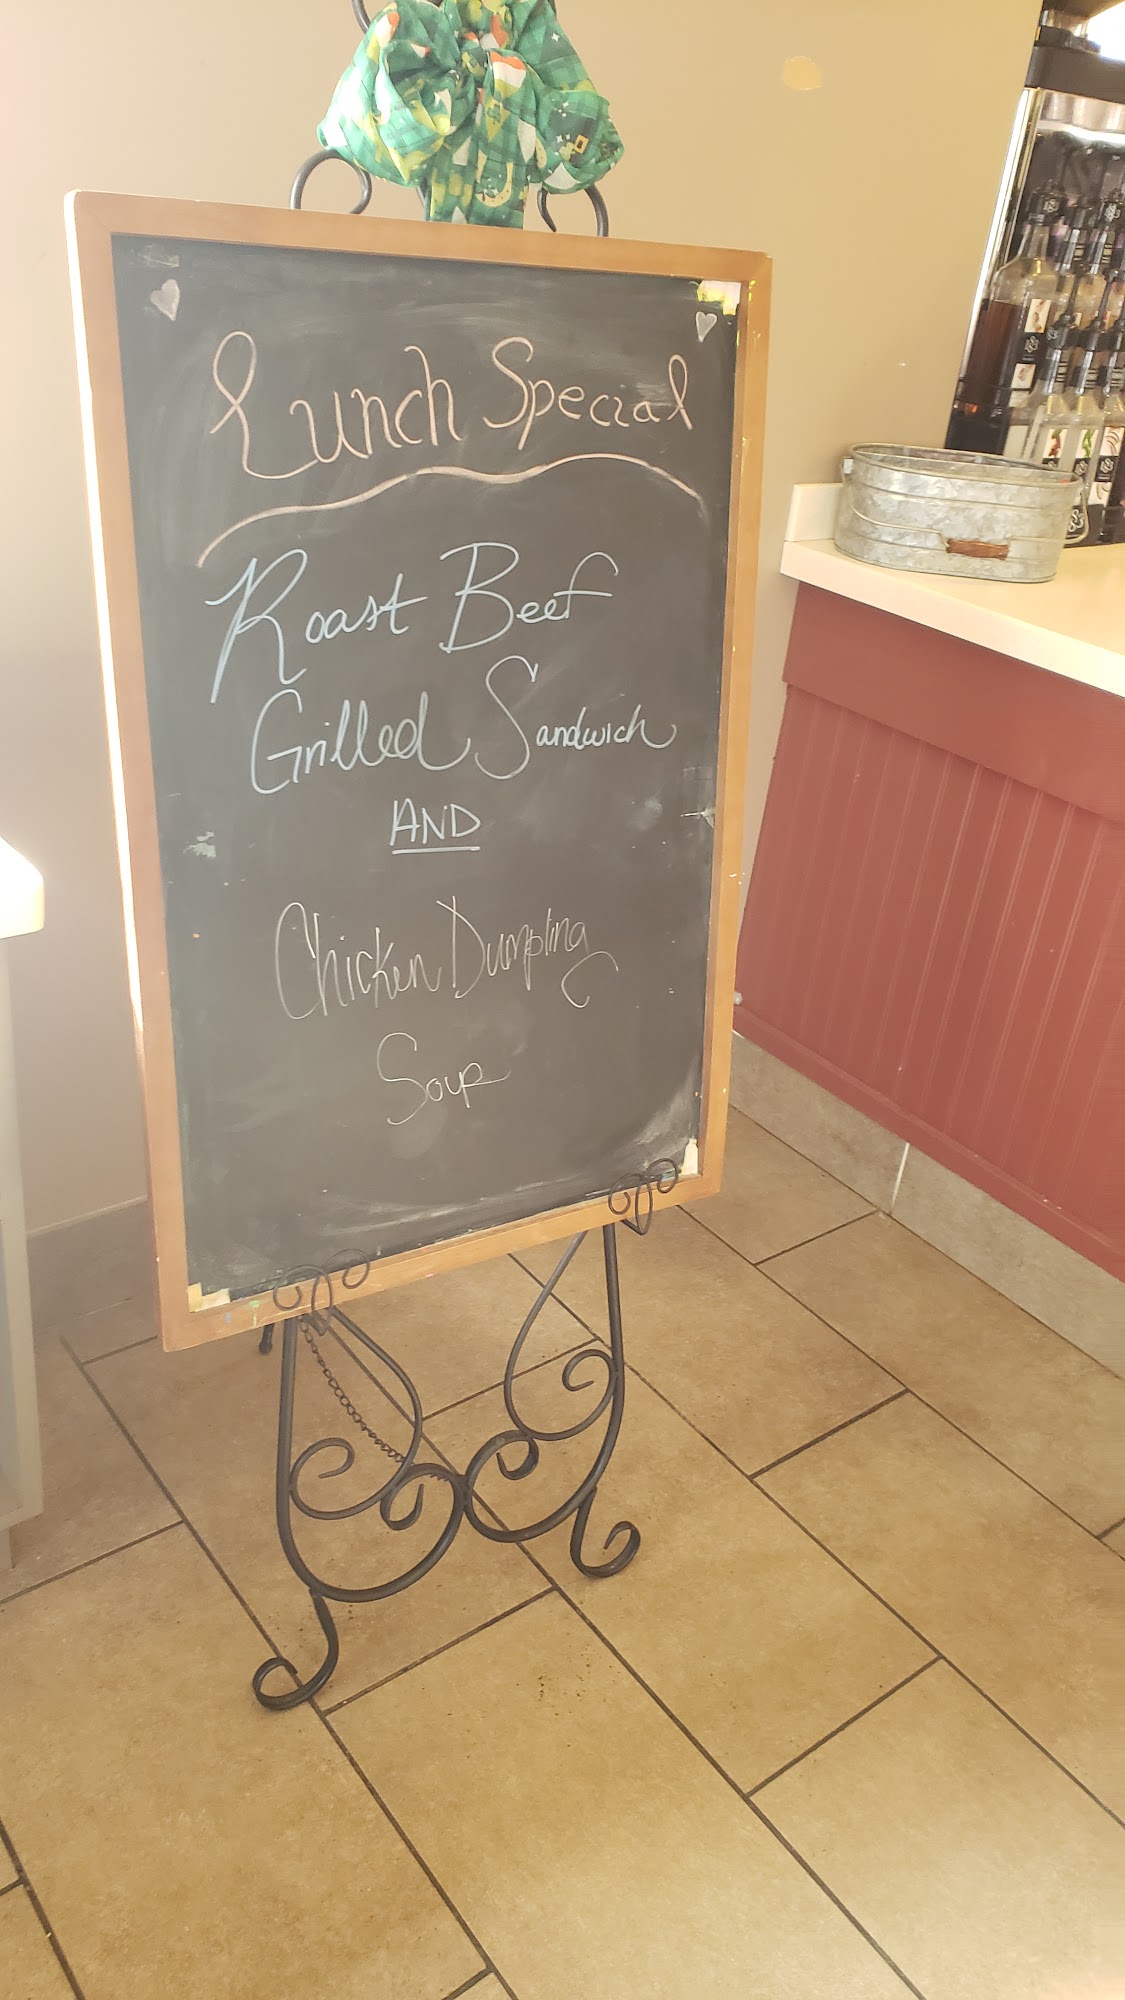 Lunch Special
Roast Beef
Grilled Sandwich
AND
Chicken Dumpling
Soup